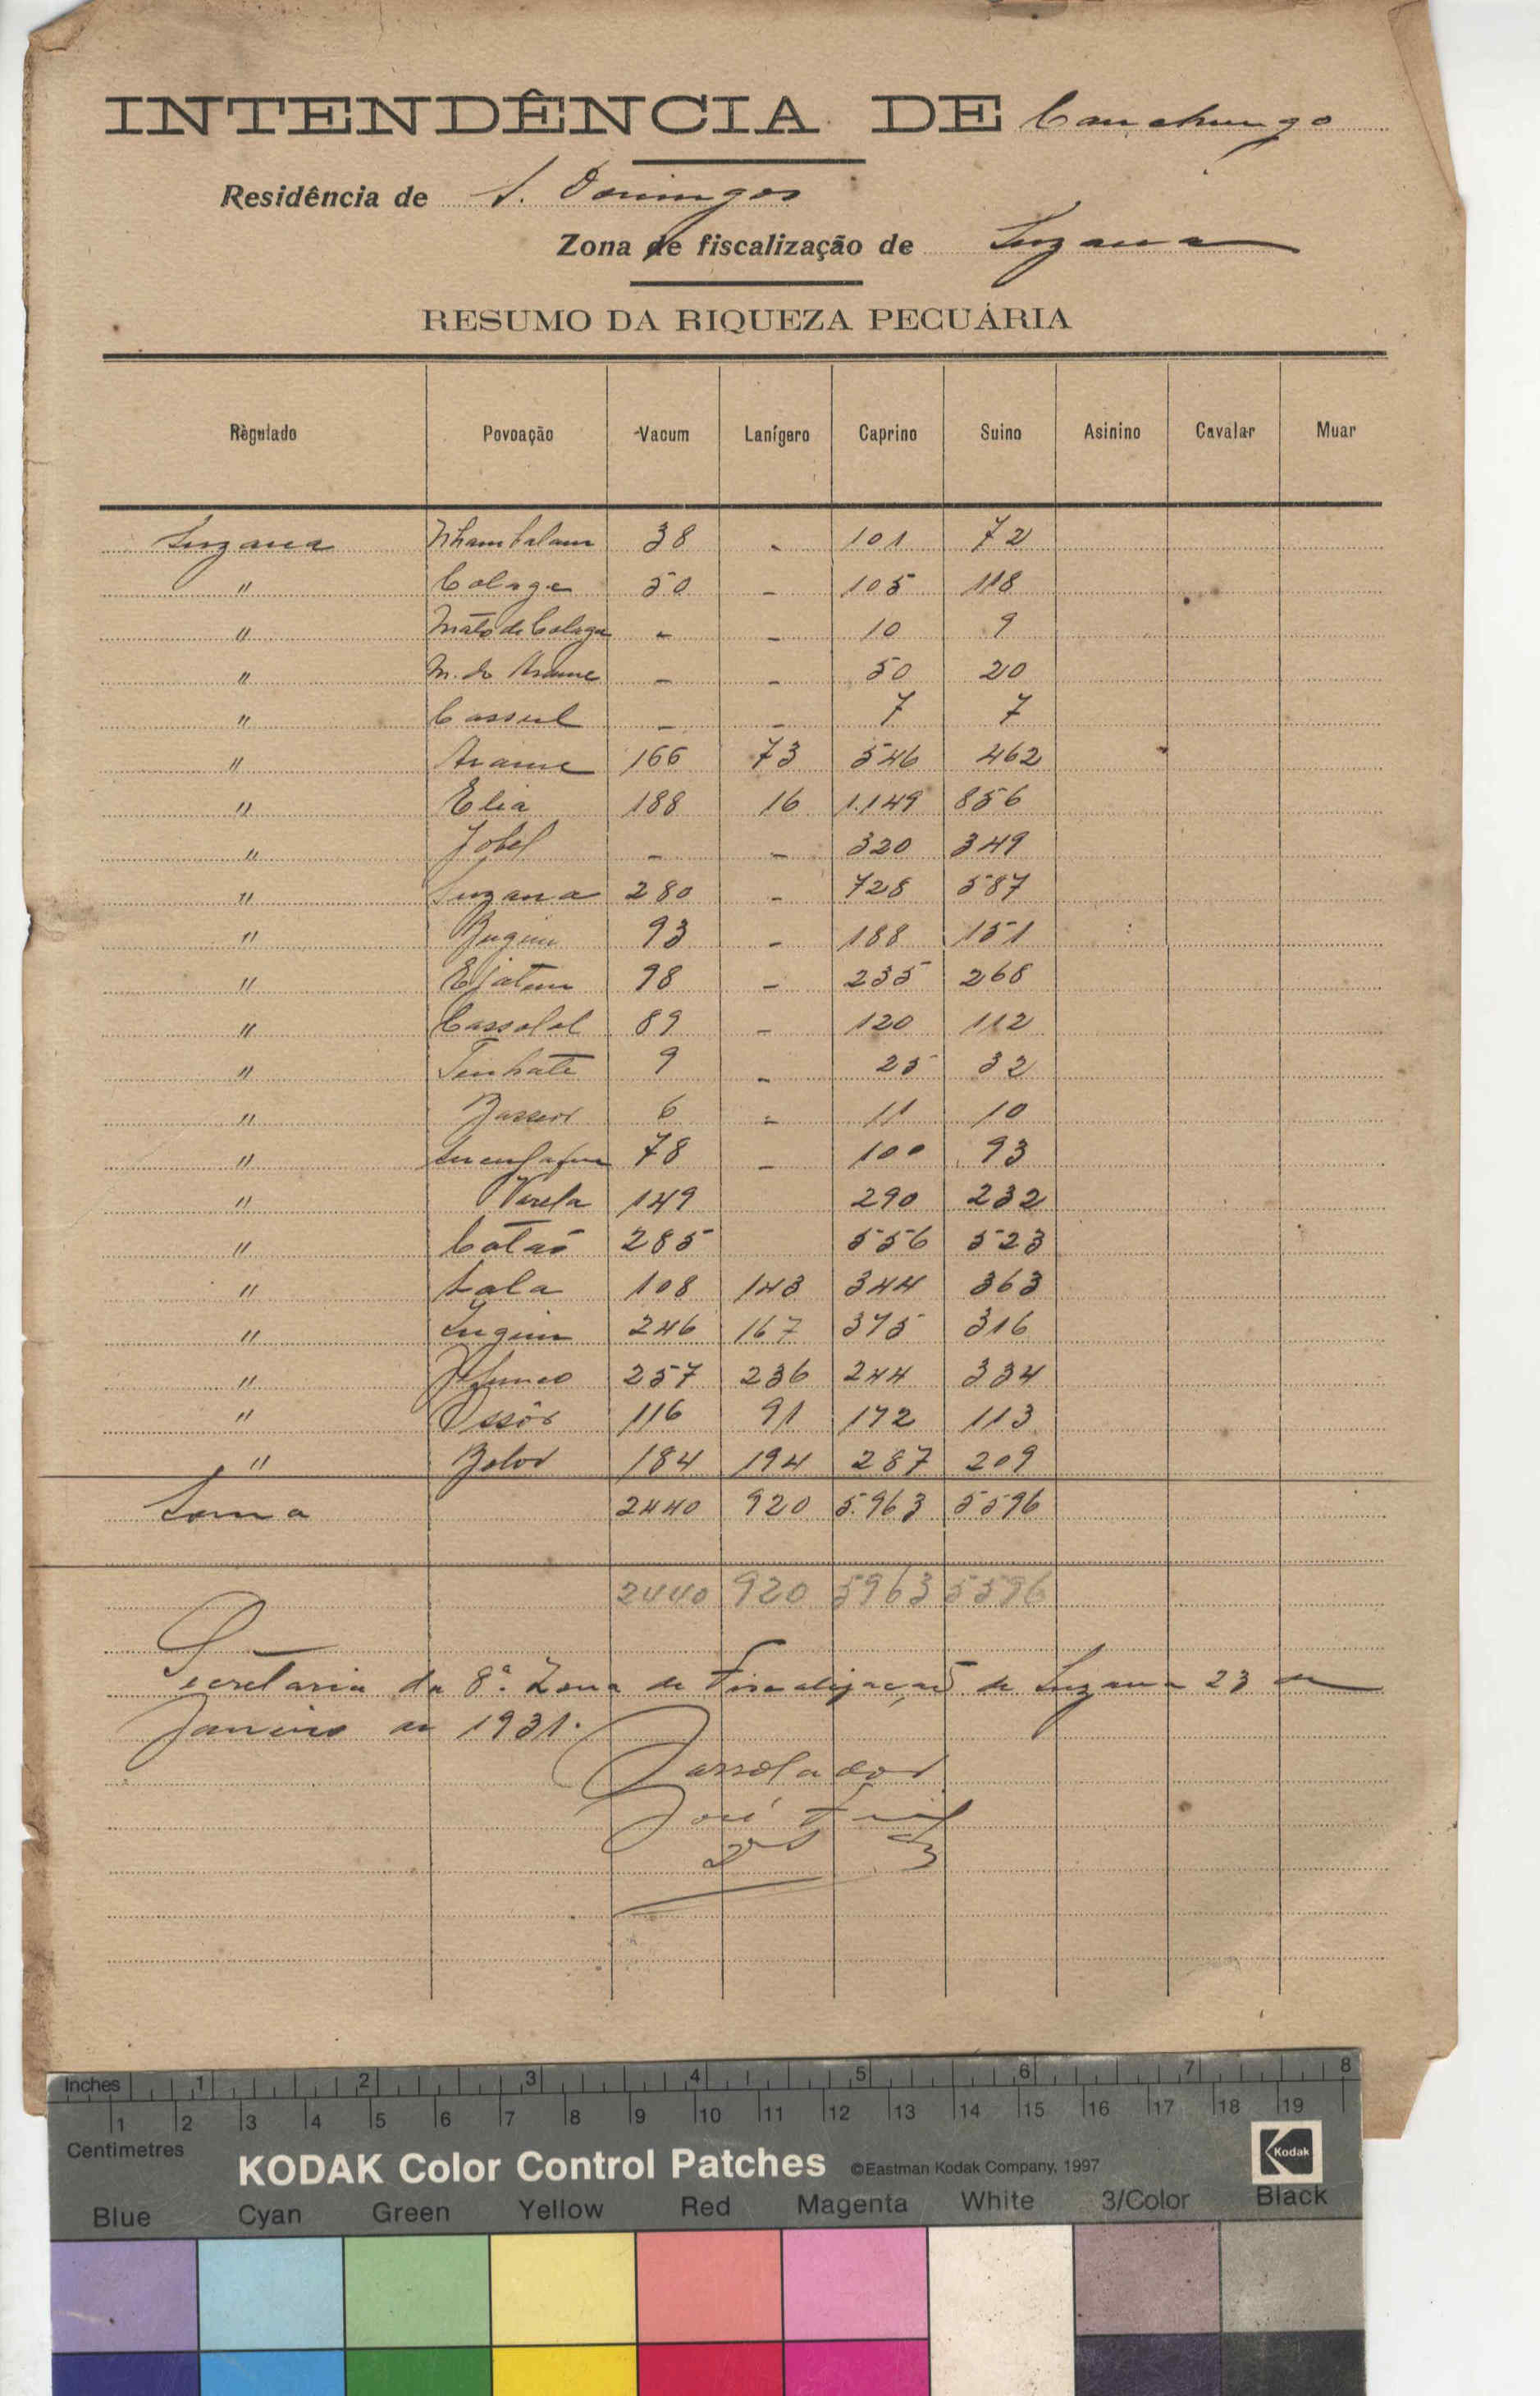 INTENDÊNCIA DE Canchungo
Residência de S. Domingos
Zona de fiscalização de Suzana
RESUMO DA RIQUEZA PECUÁRIA
Règulado Povoação Vacum Lanígero Caprino Suino Asinino Cavalar Muar
Suzana 38 - 101 72
" Colage 50 - 105 118
" Mato de Colage - - 10 9
" M. de Arame - - 50 20
" Cassul - - 7 7
" Arame 166 73 546 462
" Elia 188 16 1.149 856
" Jobel - - 320 349
" Suzana 280 - 728 587
" Bugim 93 - 188 151
" Ejatem 98 - 235 268
" Cassolol 89 - 120 112
" Tenhate 9 - 25 32
" 6 - 11 10
" 78 - 100 93
" Varela 149 290 232
" Catão 285 556 523
" Lala 108 143 344 363
" 246 167 375 316
" 257 236 244 334
" Ossôr 116 91 172 113
" Belor 184 194 287 209
Soma 2440 920 5.963 5596
2440 920 5963 5596
Secretaria da 8ª. Zona de Fiscalização de Suzana 23 de
Janeiro de 1931.
O arrolador
José
Inches 1 2 3 4 5 6 7 8
1 2 3 4 5 6 7 8 9 10 11 12 13 14 15 16 17 18 19
Centimetres
KODAK Color Control Patches ©Eastman Kodak Company, 1997 Kodak
Blue Cyan Green Yellow Red Magenta White 3/Color Black